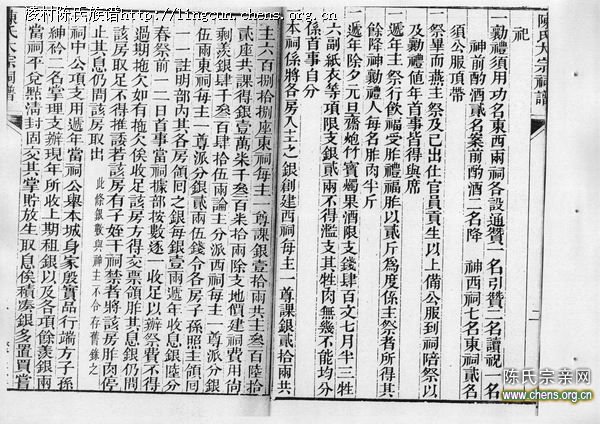 凌村陈氏族谱http://lingcun.chens.org.cn
陳氏大宗祠譜
祀
勸禮須用功名東西兩祠各設通贊二名引贊二名讀祝一名
神前酌酒貳名案前酌酒二名降 神西祠七名東祠貳名
須公服頂帶
一祭畢而燕主祭及己出仕官員貢生以上備公服到祠陪祭以
及勸禮值年首事皆得與席
一遞年主祭行飲福受胙禮福胙以貳斤為度係主祭者所得其
餘降神勸禮人每名胙肉半斤
一遞年除夕元旦齋炮竹寳燭果酒限支錢肆百文七月半三牲
六副紙衣等項限支銀貳兩不得濫支其牲肉無幾不能均分
係首事自分
一本祠係將各房入主之銀創建西祠每主一尊課銀貳拾兩共
二
陳氏大宗祠譜
主六百捌拾捌座東祠每主一尊課銀壹拾兩共主叁百陸拾
貳座共課得銀壹萬柒千叁百柒拾兩除支地價建祠費用尚
剩羨銀肆千叁百肆十五兩論主分派西祠每主一尊派分銀
伍兩東祠每主一尊派分銀貳兩伍錢令各房子孫照主領回
一註明部內其各房領回之銀每銀壹兩遞年收息銀陸分
春祭前一二日首事當祠據部按數逐一收足以辦祭費不得
過期拖欠如有拖欠俟收足該房方得交票領胙其息銀仍問
該房取足不得推諉若該房有子姪干祠禁者將該房胙肉停
止其息仍問該房取出 此條銀數與神主不合存舊錄之
一祠中公項支用遞年當祠公舉本城身家殷實品行端方子孫
紳衿二名掌理支辦現年所收上期租銀以及各項餘羨銀兩
當祠平兌點清封固交其掌貯放生取息俟積湊銀多置買嘗
陈氏宗亲网
www.chens.org.cn